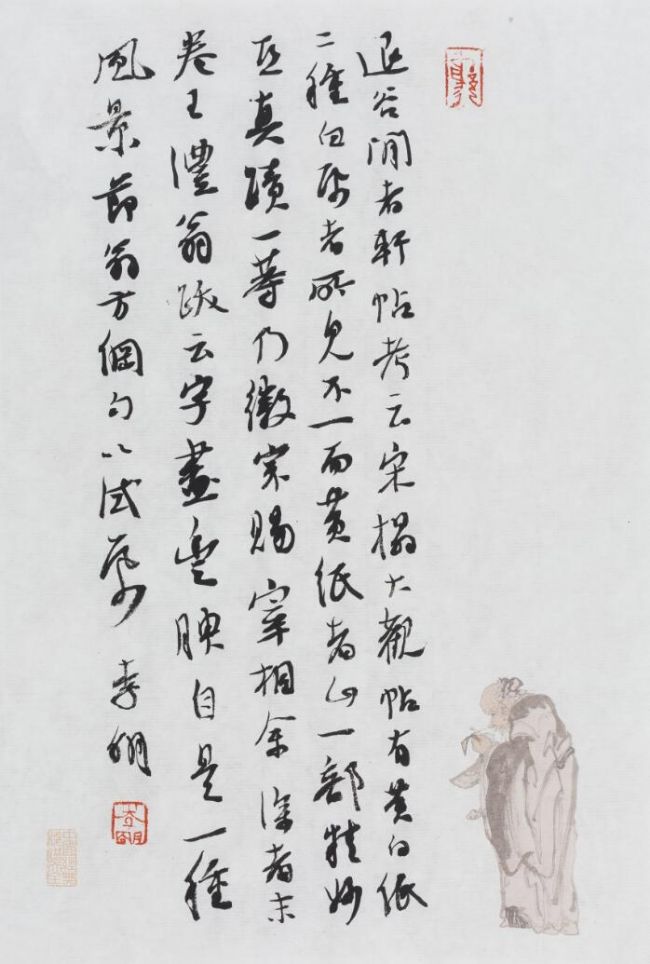 退谷閒者軒帖考云宋搨大觀帖有黃白紙
二種白帋者所見不一而黃紙者止一部精妙
亞真蹟一等乃徽宗賜宰相余深者末
卷王澧翁跋云字畫豐腴自是一種
風景節翁方綱句以試 李